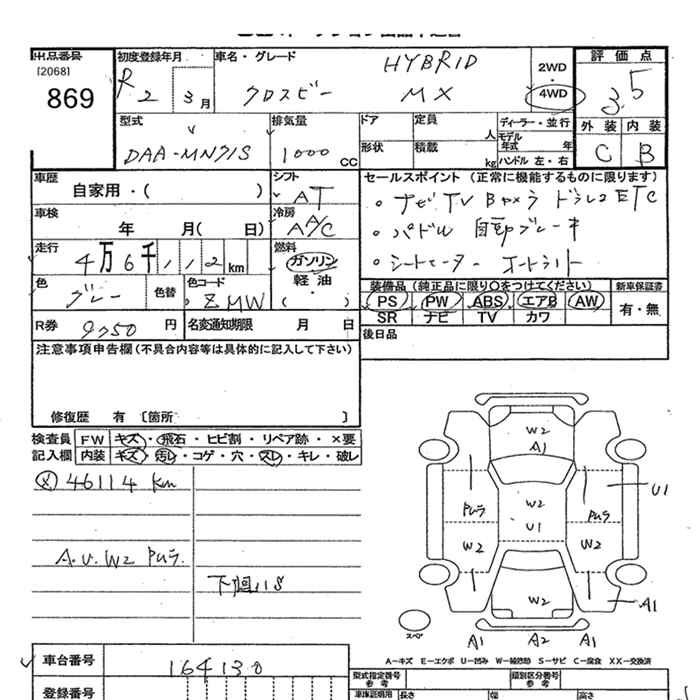 出品番号
[2068]
869
初度登録年月
R 2 3月
車名・グレード
HYBRID
クロスビー MX
2WD
・
4WD
評価点
3.5
外装 内装
C B
型式
DAA-MN71S
排気量
1000 CC
ドア 定員 人
形状 積載 kg
ディーラー・並行
モデル年式 年
ハンドル 左・右
車歴
自家用・( )
シフト
AT
車検
年 月( 日)
冷房
A/C
走行
4万6千112km
燃料
ガソリン
軽油
・( )
色
グレー
色替
色コード
ZMW
R券
9250 円
名変通知期限 月 日
セールスポイント (正常に機能するものに限ります)
・ナビ TV Bカメラ ドラレコ ETC
・パドル 自動ブレーキ
・シートヒーター オートライト
装備品 (純正品に限り○をつけてください)
PS PW ABS エアB AW
SR ナビ TV カワ
新車保証書
有・無
後日品
注意事項申告欄(不具合内容等は具体的に記入して下さい)
修復歴 有 〔箇所 〕
検査員
記入欄
FW キズ・飛石・ヒビ割・リペア跡・×要
内装 キズ・汚レ・コゲ・穴・スレ・キレ・破レ
46114 km
A.U.W2 PUラ.
下廻りS
W2
A1
W2
U1
PUラ
PUラ
U1
W2
W2
W2
A1
スペア
A1 A2 A1
A-キズ E-エクボ U-凹み W-補修跡 S-サビ C-腐食 XX-交換済
車台番号
164130
登録番号
型式指定番号
参考
類別区分番号
参考
車庫証明用 長さ 幅 高さ